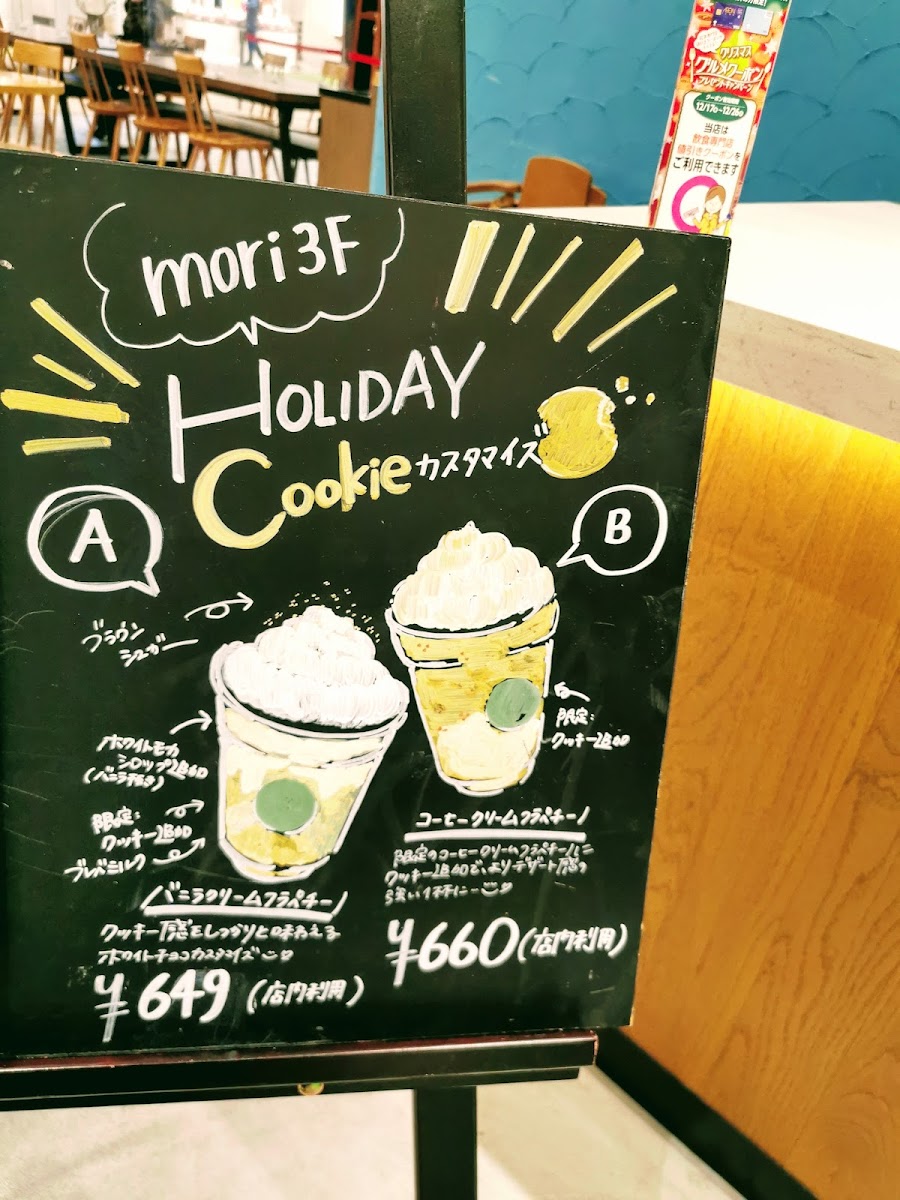 クリスマス
グルメクーポン
プレゼントキャンペーン
クーポン有効期間
12/17㊎~12/26㊐
当店は
飲食専門店
値引きクーポンを
ご利用できます
mori 3F
HOLIDAY
Cookie カスタマイズ
A
B
ブラウン
シュガー
ホワイトモカ
シロップ追加
(バニラ抜き)
限定:
クッキー追加
ブレべミルク
限定:
クッキー追加
バニラクリームフラペチーノ
クッキー感をしっかりと味わえる
ホワイトチョコカスタマイズ
¥649 (店内利用)
コーヒークリームフラペチーノ
限定のコーヒークリームフラペチーノに
クッキー追加で、よりデザート感の
強い1杯に
¥660 (店内利用)